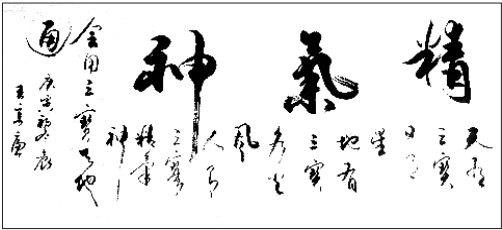 精氣神
天有
三寶
日月
星
地有
三寶
水火
風
人有
三寶
精氣
神
会用三寶天地
通
庚寅